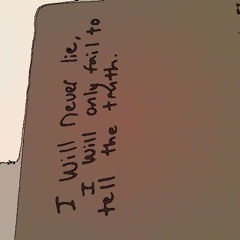 I Will never lie,
I Will only fail to
tell the truth.